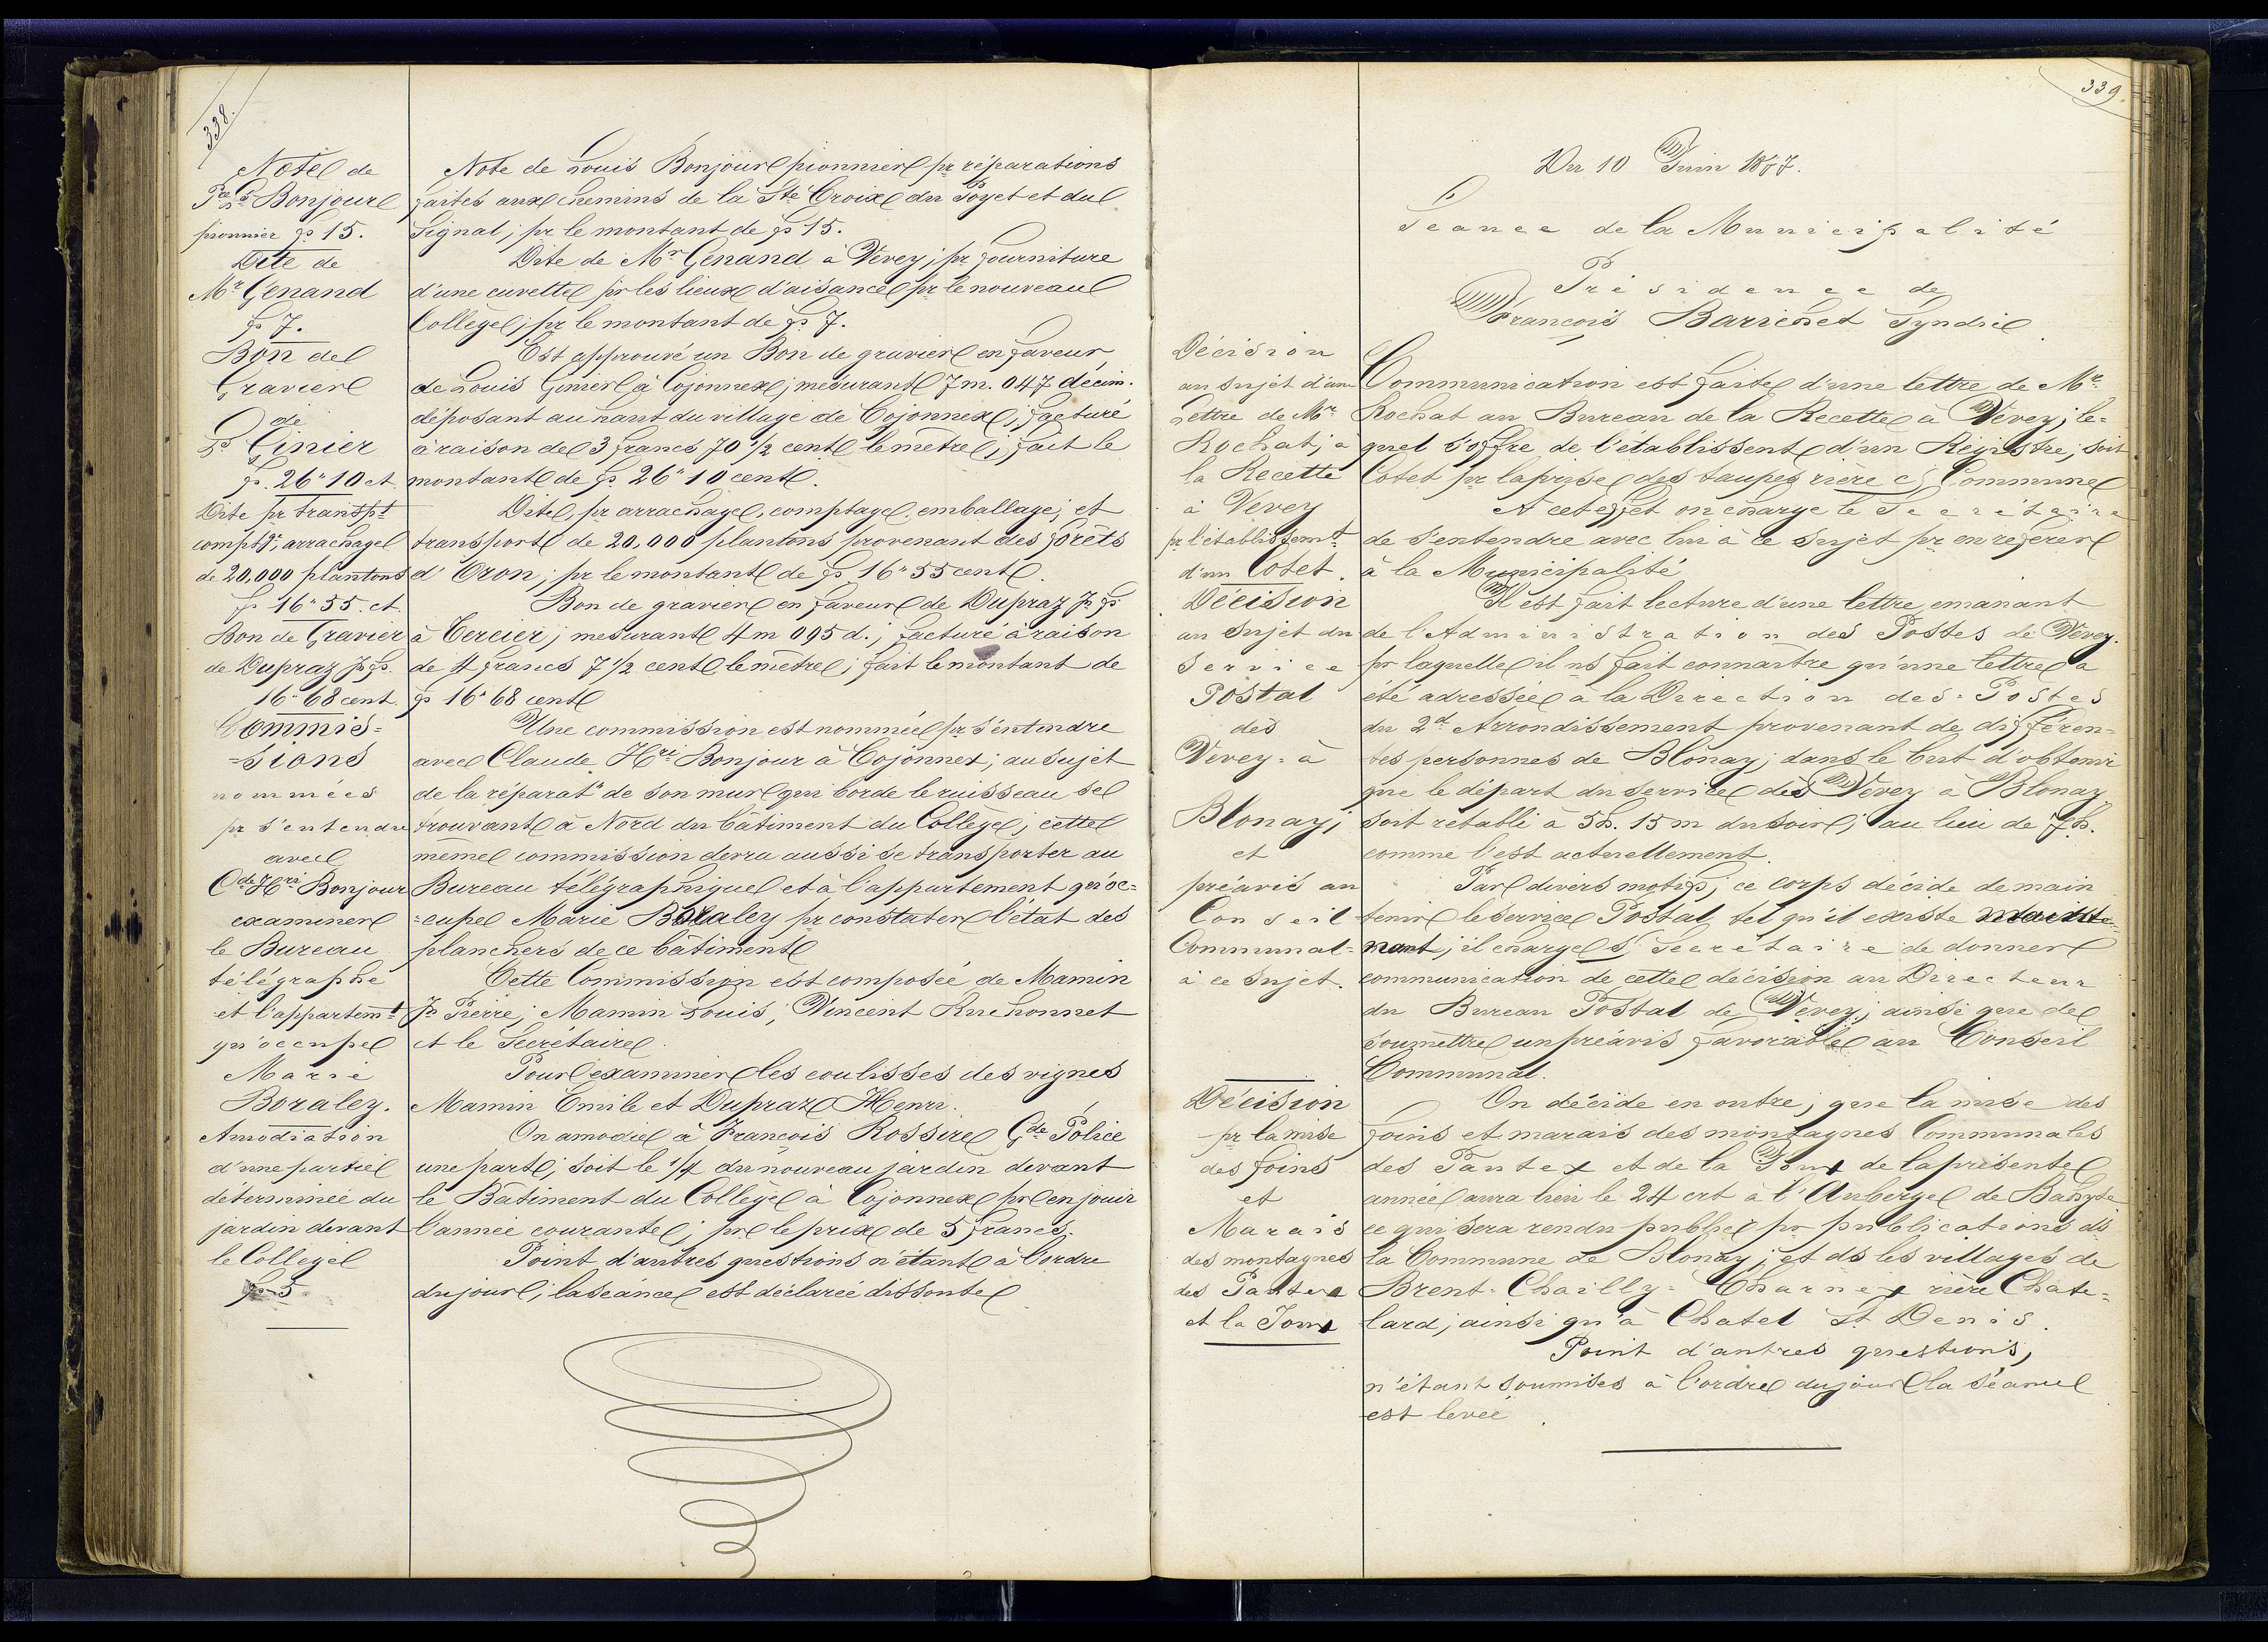 338.
Note de
Ls Bonjour
pionnier fs 15.
Dite de
Mr Genand
fs 7.
Bon de
Gravier
de
Ls Ginier
fs. 26"10 ct.
Dite pr transpt
comptge, arrachage
de 20,000 plantons
fs 16"55. ct.
Bon de Gravier
de Dupraz Js fs.
16"68 cent.
Commis=
=sions
nommées
pr s'entendre
avec
Cde Hri Bonjour
examiner
le Bureau
télégraphe
et l'appartemt
qu'occupe
Marie
Boraley.
Amodiation
d'une partie
déterminée du
jardin devant
le College
fs 5.
Note de Louis Bonjour pionnier pr réparations
faites aux chemins de la Ste Croix du Poyet et du
Signal; pr le montant de fs 15.
Dite de Mr Genand à Vevey; pr fourniture
d'une cuvette pr les lieux d'aisance pr le nouveau
Collège; pr le montant de fs 7.
Est approuvé un Bon de gravier en faveur
de Louis Ginier à Cojonnex; mesurant 7m. 047 décim.
déposant au haut du village de Cojonnex; facturé
à raison de 3 francs 70 1/2 cent le mètre; fait le
montant de fs. 26"10 cent.
Dite, pr arrachage, comptage, emballage; et
transport de 20,000 plantons provenant des forêts
d'Oron; pr le montant de fs 16"55 cent.
Bon de gravier en faveur de Dupraz Js fs
à Cercier; mesurant 4m 095 d.; facturé à raison
de 4 francs 7 1/2 cent le mètre; fait le montant de
fs 16"68 cent
Une commission est nommée pr s'entendre
avec Claude Hri Bonjour à Cojonnex; au sujet
de la réparatn de son mur qui borde le ruisseau se
trouvant à Nord du bâtiment du Collège; cette
même commission devra aussi se transporter au
Bureau télégraphique et à l'appartement qu'oc=
=cupe Marie Boraley pr constater l'état des
planchers de ce bâtiment
Cette Commission est composée de Mamin
Js Pierre; Mamin Louis, Vincent Ruchonnet
et le Secrétaire.
Pour examiner les coulisses des vignes
Mamin Emile et Dupraz Henri.
On amodie à François Rossire Gde Police
une part; soit le 1/4 du nouveau jardin devant
le Bâtiment du Collège à Cojonnex pr en jouir
l'année courante; pr le prix de 5 francs.
Point d'autres questions n'étant à l'ordre
du jour; la séance est déclarée dissoute
339.
Du 10 Juin 1887.
Séance de la Municipalité
Présidence de
François Barichet Syndic
Décision
au sujet d'une
Lettre de Mr
Rochat; à
la Recette
à Vevey
pr l'établissemt
d'un Cotet.
Décision
au sujet du
Service
Postal
des
Vevey = à
Blonay;
et
préavis au
Conseil
Communal =
à ce sujet.
Décision
pr la mise
des foins
et
Marais
des montagnes
des Pautex
et la Joux
Communication est faite d'une lettre de Mr.
Rochat au Bureau de la Recette à Vevey; le=
quel s'offre de l'établissent d'un Régistre; soit
Cotet pr la prise des taupes rière cs Commune
A cet effet on charge le Secrétaire
de s'entendre avec lui à ce sujet pr en référer
à la Municipalité
Il est fait lecture d'une lettre emanant
de l'Administration des Postes de Vevey.
pr laquelle il ns fait connaître qu'une lettre a
été adressée à la Direction des Postes
du 2d Arrondissement provenant de différen=
tes personnes de Blonay; dans le but d'obtenir
que le départ du service dès Vevey à Blonay
soit rétabli à 5h. 15m du soir; au lieu de 7h.
comme l'est actuellement.
Par divers motifs; ce corps décide de main
tenir le service Postal tel qu'il existe mainte=
nant; il charge s/ Secrétaire de donner
communication de cette décision au Directeur
du Bureau Postal de Vevey; ainsi que de
soumettre un préavis favorable au Conseil
Communal.
On décide en outre; que la mise des
foins et marais des montagnes Communales
des Pautex et de la Joux de la présente
année aura lieu le 24 crt à l'Auberge de Bahyse
ce qui sera rendu public pr publications ds
la Commune de Blonay; et ds les villages de
Brent = Chailly = Charnex rière Chate=
lard; ainsi qu'à Chatel St Denis.
Point d'autres questions,
n'étant soumises à l'ordre du jour la séance
est levée.